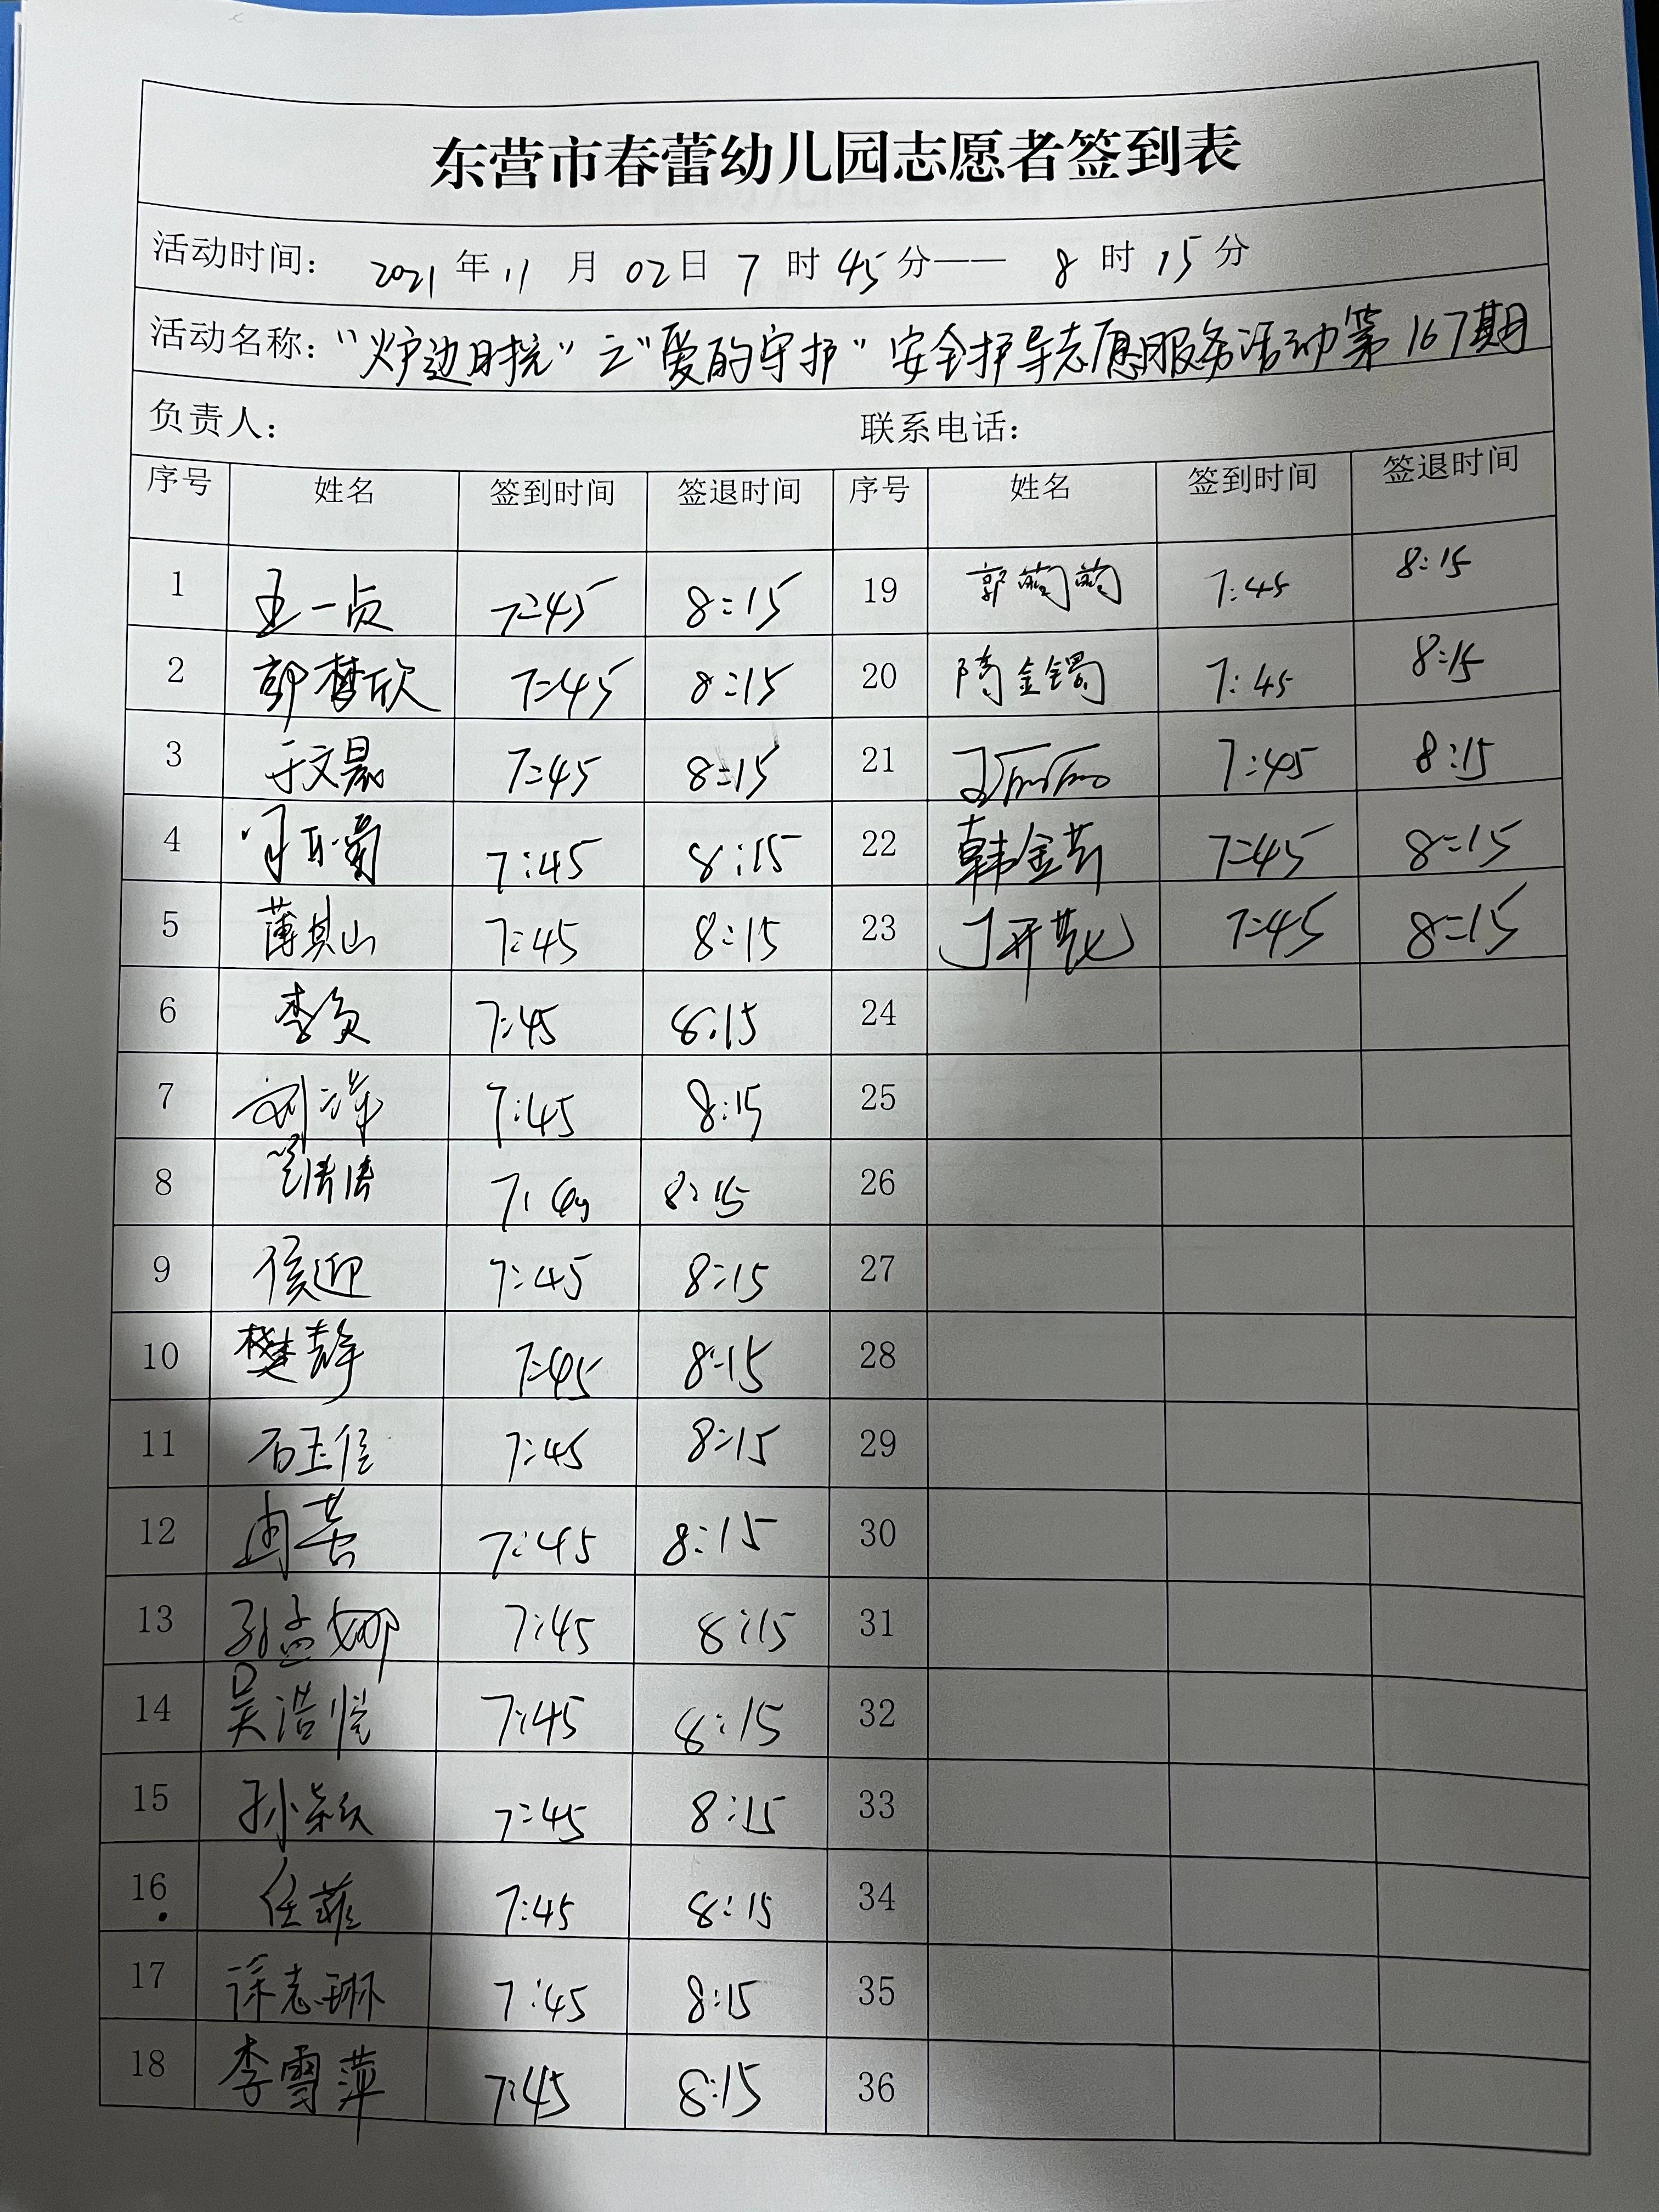 东营市春蕾幼儿园志愿者签到表
活动时间: 2021 年 11 月 02 日 7 时 45 分—— 8 时 15 分
活动名称:"炉边时光"之"爱的守护"安全护导志愿服务活动第167期
负责人: 联系电话:
序号 姓名 签到时间 签退时间 序号 姓名 签到时间 签退时间
1 王一贞 7:45 8:15 19 郭萄萄 7:45 8:15
2 郭梦欣 7:45 8:15 20 陶金锡 7:45 8:15
3 于文晨 7:45 8:15 21 王丽丽 7:45 8:15
4 7:45 8:15 22 韩金芳 7:45 8:15
5 薄其山 7:45 8:15 23 丁开花 7:45 8:15
6 李负 7:45 8:15 24
7 刘洋 7:45 8:15 25
8 7: 8:15 26
9 侯迎 7:45 8:15 27
10 樊静 7:45 8:15 28
11 石玉 7:45 8:15 29
12 7:45 8:15 30
13 孙孟娜 7:45 8:15 31
14 吴浩恺 7:45 8:15 32
15 孙颖 7:45 8:15 33
16 任菲 7:45 8:15 34
17 徐志琳 7:45 8:15 35
18 李雪萍 7:45 8:15 36